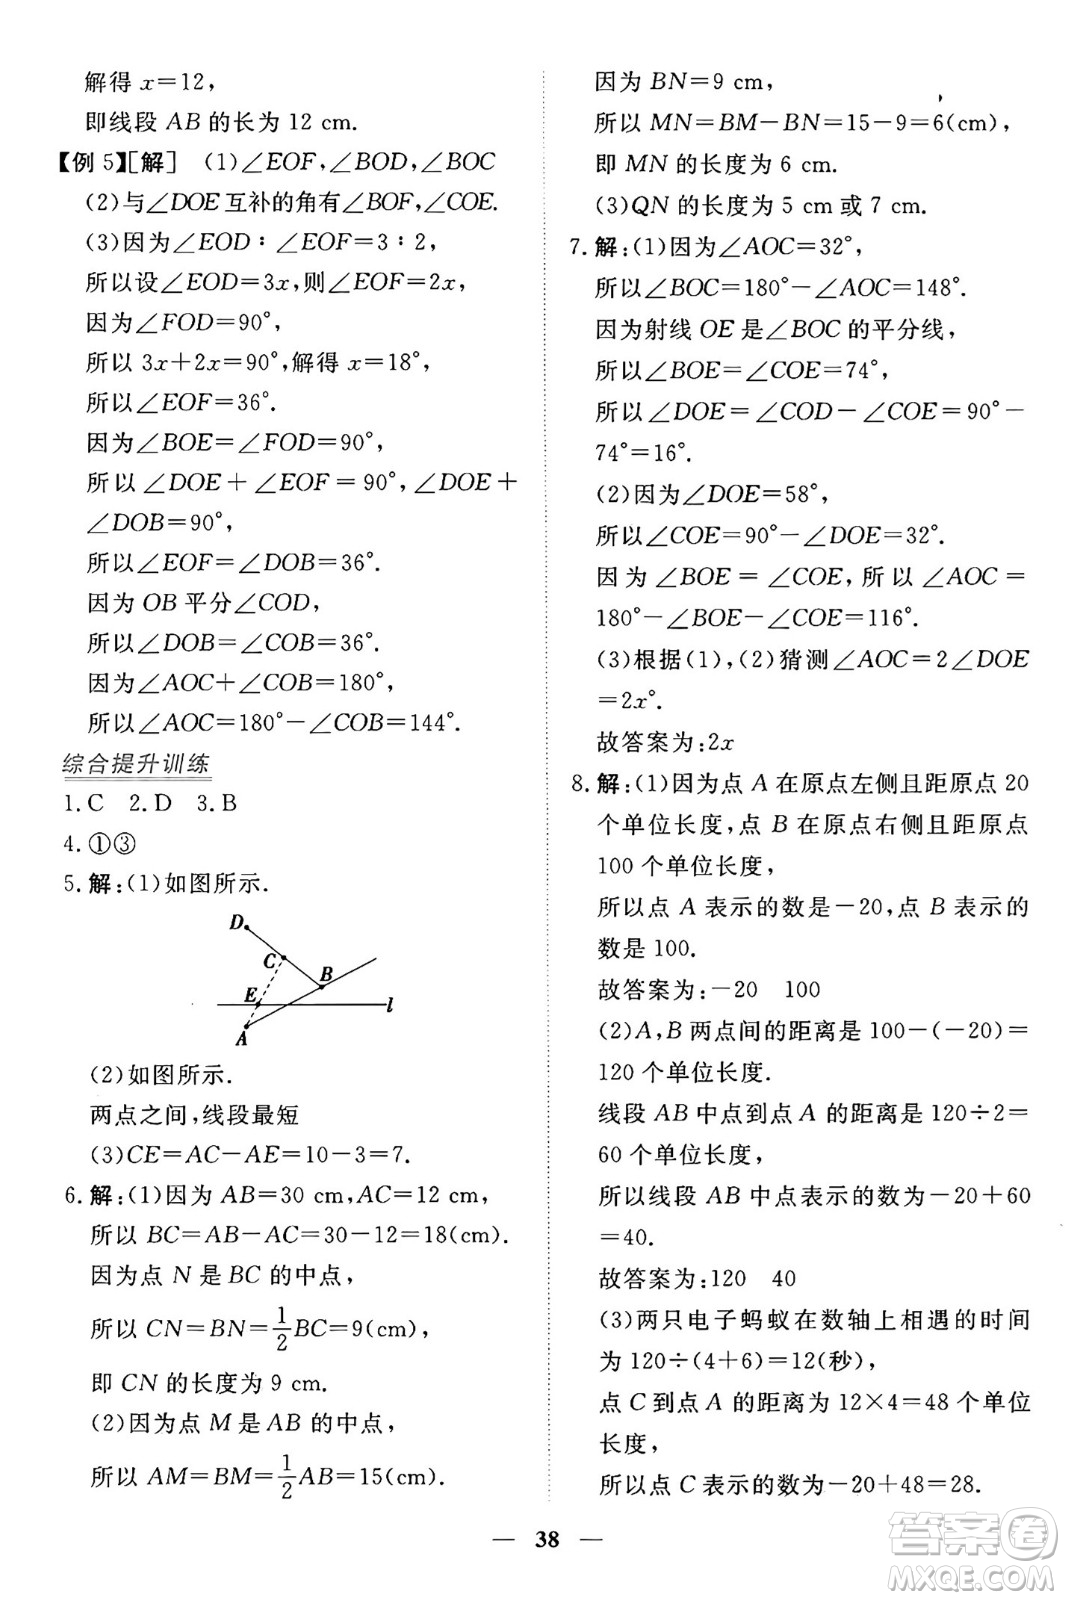 解得 x=12,
即线段 AB 的长为 12 cm.
【例 5】[解] (1)∠EOF,∠BOD,∠BOC
(2)与∠DOE 互补的角有∠BOF,∠COE.
(3)因为∠EOD∶∠EOF=3∶2,
所以设∠EOD=3x,则∠EOF=2x,
因为∠FOD=90°,
所以 3x+2x=90°,解得 x=18°,
所以∠EOF=36°.
因为∠BOE=∠FOD=90°,
所以 ∠DOE + ∠EOF = 90°, ∠DOE +
∠DOB=90°,
所以∠EOF=∠DOB=36°.
因为 OB 平分∠COD,
所以∠DOB=∠COB=36°.
因为∠AOC+∠COB=180°,
所以∠AOC=180°-∠COB=144°.
综合提升训练
1. C 2. D 3. B
4. ①③
5. 解:(1)如图所示.
D
C
B
E
l
A
(2)如图所示.
两点之间,线段最短
(3)CE=AC-AE=10-3=7.
6. 解:(1)因为 AB=30 cm,AC=12 cm,
所以 BC=AB-AC=30-12=18(cm).
因为点 N 是 BC 的中点,
所以 CN=BN=1/2BC=9(cm),
即 CN 的长度为 9 cm.
(2)因为点 M 是 AB 的中点,
所以 AM=BM=1/2AB=15(cm).
因为 BN=9 cm,
所以 MN=BM-BN=15-9=6(cm),
即 MN 的长度为 6 cm.
(3)QN 的长度为 5 cm 或 7 cm.
7. 解:(1)因为∠AOC=32°,
所以∠BOC=180°-∠AOC=148°.
因为射线 OE 是∠BOC 的平分线,
所以∠BOE=∠COE=74°,
所以∠DOE=∠COD-∠COE=90°-
74°=16°.
(2)因为∠DOE=58°,
所以∠COE=90°-∠DOE=32°.
因为 ∠BOE = ∠COE, 所以 ∠AOC =
180°-∠BOE-∠COE=116°.
(3)根据(1),(2)猜测∠AOC=2∠DOE
=2x°.
故答案为:2x
8. 解:(1)因为点 A 在原点左侧且距原点 20
个单位长度,点 B 在原点右侧且距原点
100 个单位长度,
所以点 A 表示的数是-20,点 B 表示的
数是 100.
故答案为:-20 100
(2)A,B 两点间的距离是 100-(-20)=
120 个单位长度.
线段 AB 中点到点 A 的距离是 120÷2=
60 个单位长度,
所以线段 AB 中点表示的数为-20+60
=40.
故答案为:120 40
(3)两只电子蚂蚁在数轴上相遇的时间
为 120÷(4+6)=12(秒),
点 C 到点 A 的距离为 12×4=48 个单位
长度,
所以点 C 表示的数为-20+48=28.
38
答案卷
MXQE.COM